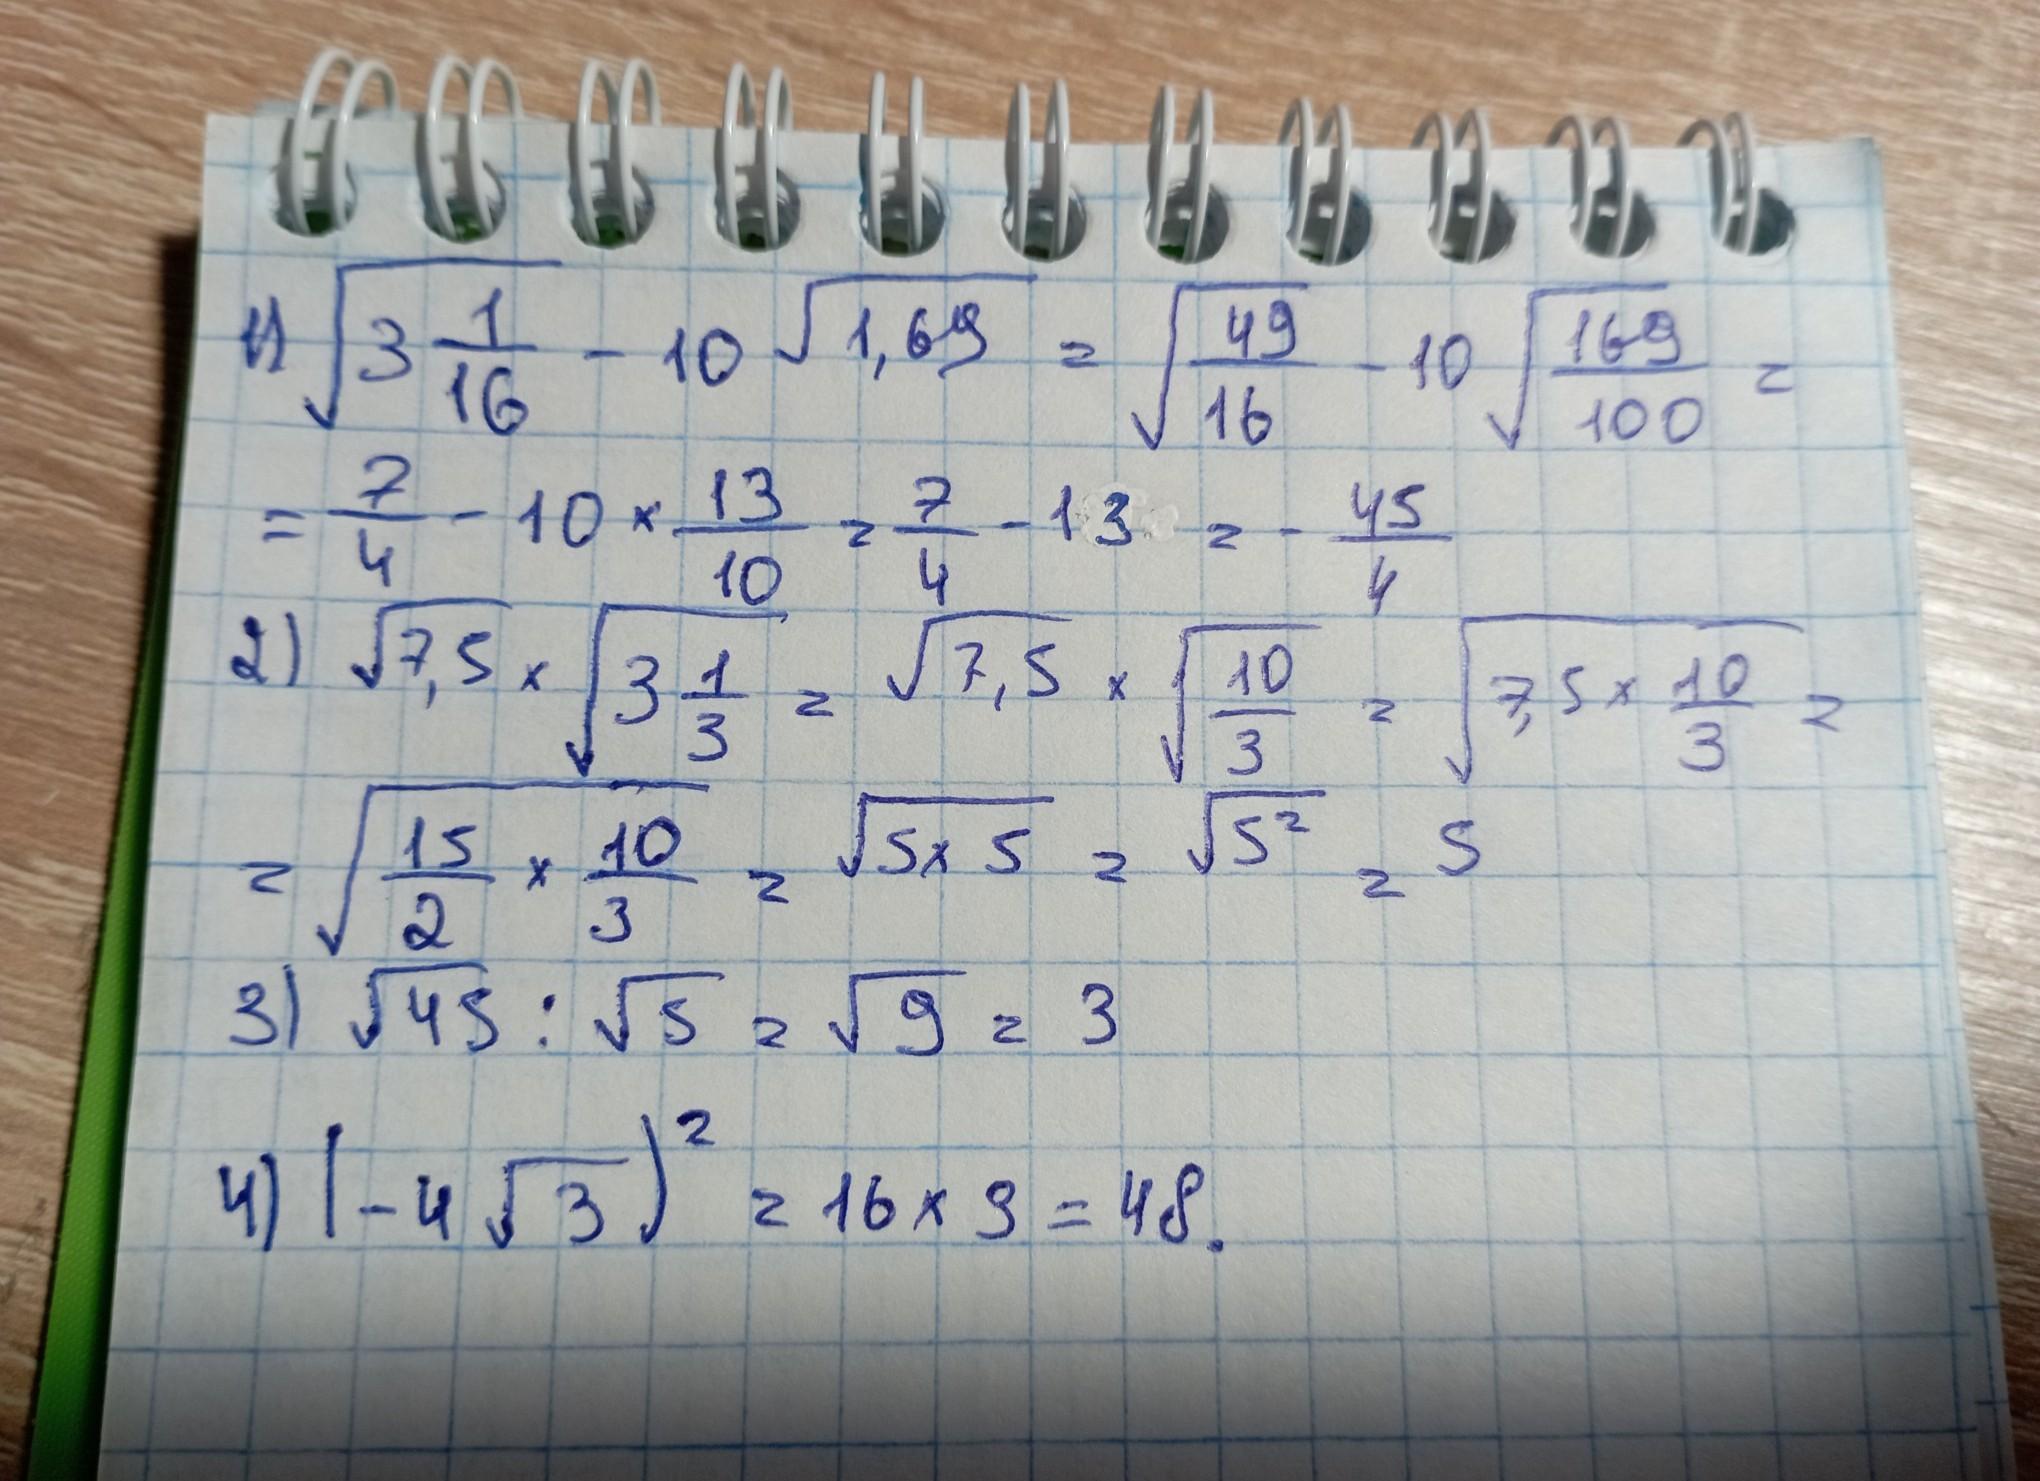 1) √3 1/16 - 10 √1,69 = √49/16 - 10 √169/100 =
= 7/4 - 10 × 13/10 = 7/4 - 13 = - 45/4
2) √7,5 × √3 1/3 = √7,5 × √10/3 = √7,5 × 10/3 =
= √15/2 × 10/3 = √5 × 5 = √5² = 5
3) √45 : √5 = √9 = 3
4) (-4 √3)² = 16 × 9 = 48.